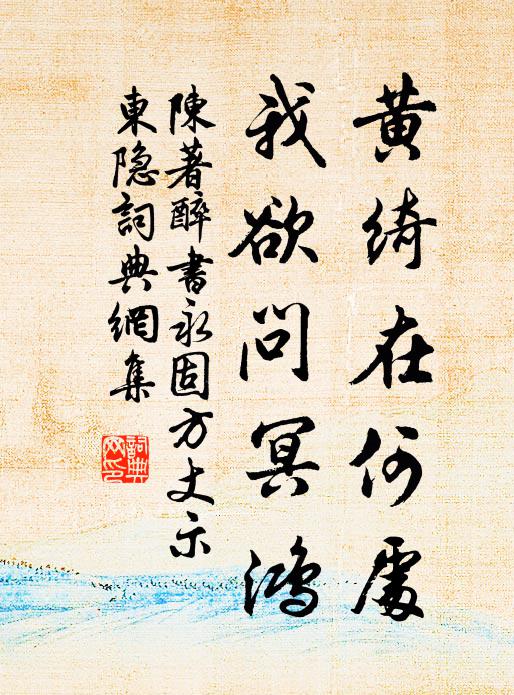 黄绮在何處
我欲问冥鸿
陳著醉書永固方丈示
東隐詞典網集
詞典